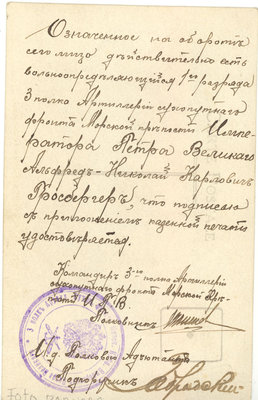 Означенное на оборотѣ
сего лицо дѣйствительно есть
вольноопредѣляющійся 1го разряда
3 полка Артиллеріи сухопутнаго
фронта Морской крѣпости Импе-
ратора Петра Великаго
Альфредъ-Николай Карловичъ
что подписью
съ приложеніемъ казенной печати
удостовѣряется.
Командиръ 3-го полка Артиллеріи
сухопутнаго фронта Морской Крѣ-
пости И.П.В
Полковникъ
И.д. Полковой Адъютантъ
Подпоручикъ